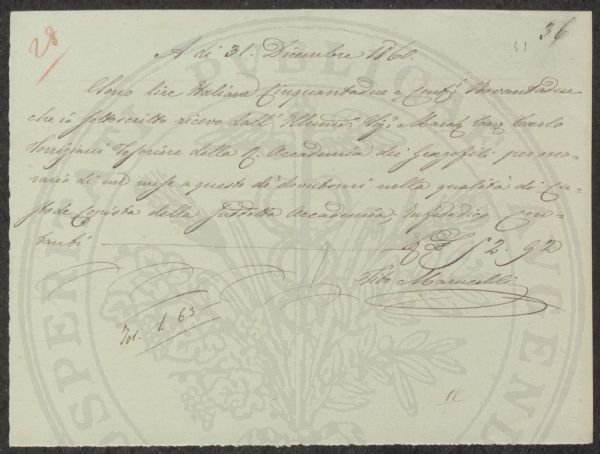 28
36
A dì 31. Dicembre 1860.
Sono lire Italiane Cinquantadue e Cent.i Novantadue
che io sottoscritto ricevo dall' Illmo Sig. March. Cav. Carlo
Torrigiani Tesoriere della R. Accademia dei Georgofili per ono-
rario di un mese a questo dì dovutomi nella qualità di Cu-
stode Copista della suddetta Accademia,
tanti 52. 92
Tito Marucelli
£ 63
PROSPERITATI PUBLICAE AUGENDAE